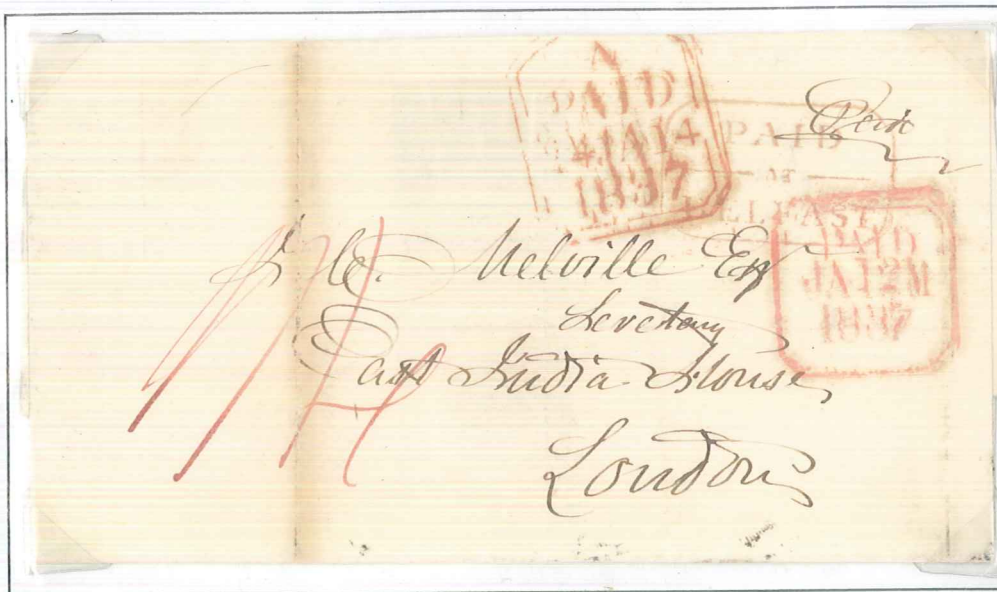 A
PAID
14 JA 14
1837
Paid
PAID
AT
BELFAST
PAID
JA 12 M
1837
Melville Esq
Secretary
East India House
London